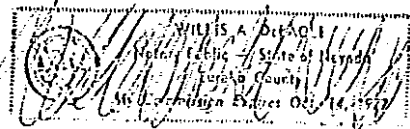 WILLIS A. DePAOLI
Notary Public — State of Nevada
Eureka County
My Commission Expires Oct. 14, 1977